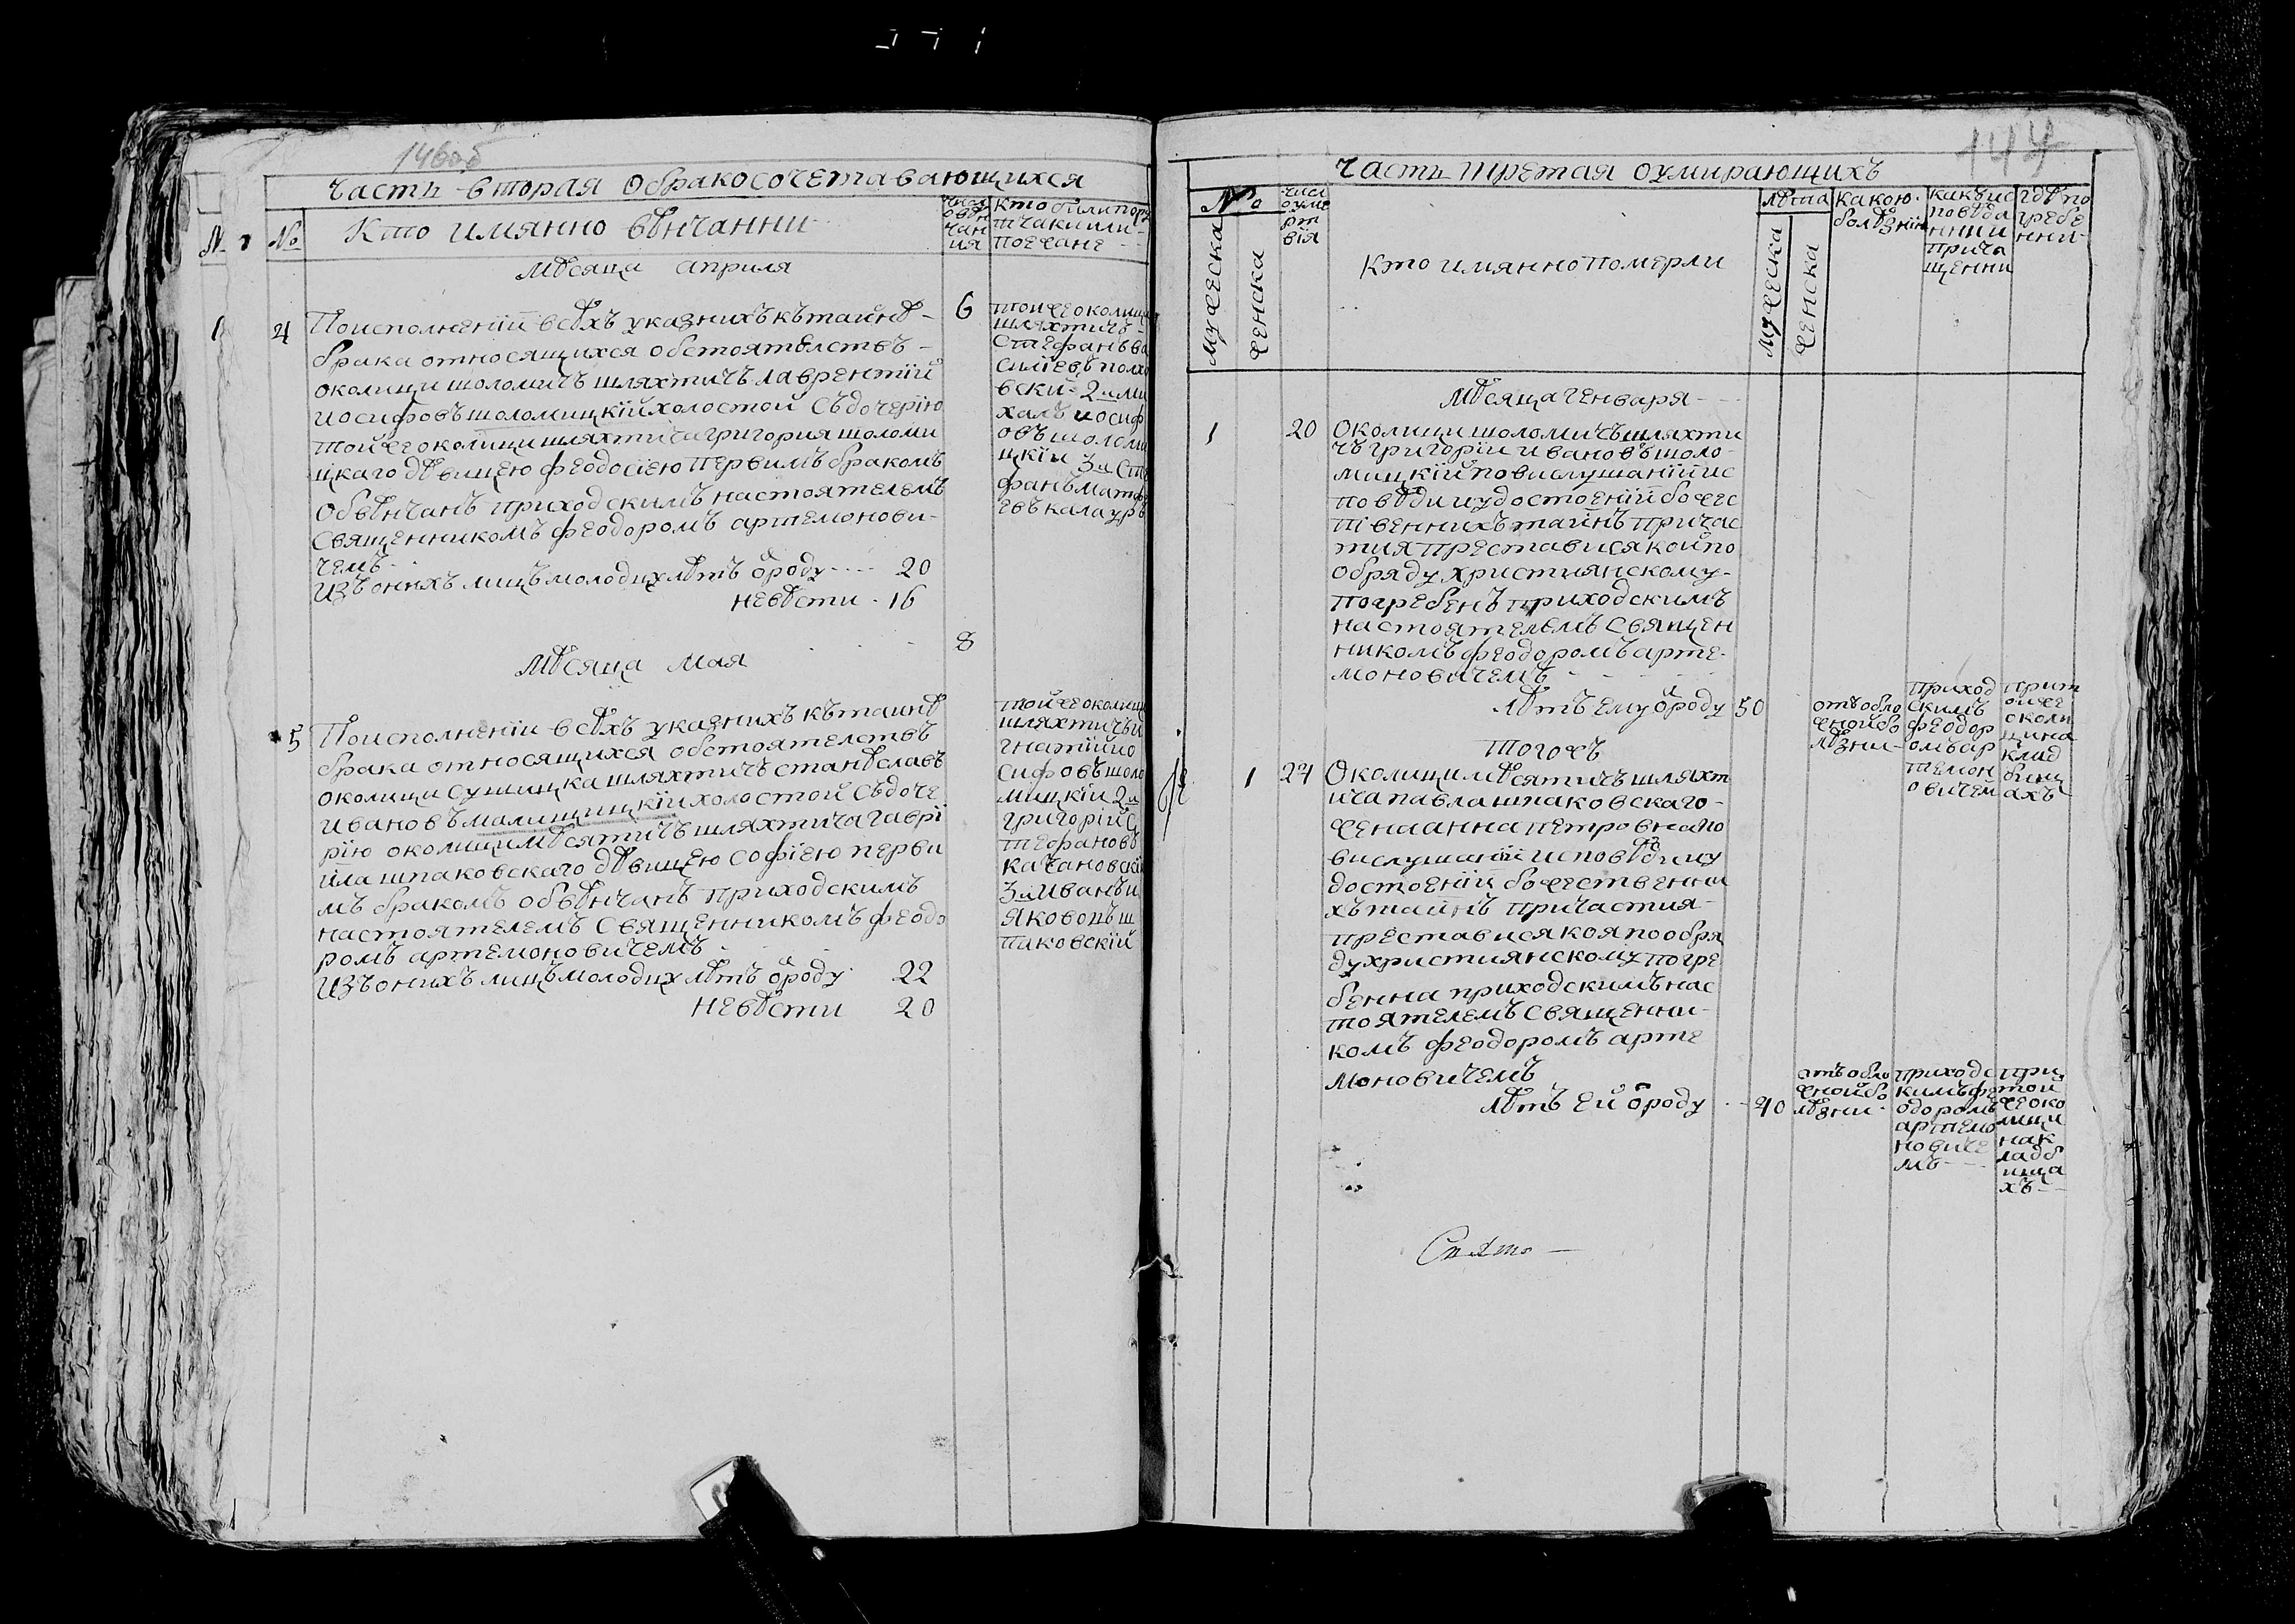 146об
Часть вторая о бракосочетавающихся
№
№
Кто имянно вѣнчанни
числ
о вѣн
чан
ия
Кто были пору
тчики или
поезжане
Мѣсяца априля
4
По исполненіи всѣхъ указнихъ къ тайнѣ
брака относящихся обстоятелствъ
околици шоломичъ шляхтичъ лаврентій
иосифовъ шоломицкій холостой съ дочерію
той же околици шляхтича григория шоломи
цкаго дѣвицею феодосіею первимъ бракомъ
обвѣнчанъ приходскимъ настоятелемъ
священникомъ феодоромъ артемонови
чемъ
изъ онихъ лицъ молодих лѣтъ ѿ роду 20
невѣсти 16
6
той же околици
шляхтичъ
стефанъ ва
силіевъ полхо
вски 2й ми
халъ иосиф
овъ шоломи
цкій 3й сте
фанъ матфе
евъ калауръ
Мѣсяца мая
8
5
По исполненіи всѣхъ указнихъ къ тайнѣ
брака относящихся обстоятелствъ
околици сушицка шляхтичъ станѣславъ
ивановъ малищицкій холостой съ доче
рію околици мѣсятичъ шляхтича гаврі
ила шпаковскаго дѣвицею софіею перви
мъ бракомъ обвѣнчанъ приходскимъ
настоятелемъ священникомъ феодо
ромъ артемоновичемъ
изъ онихъ лицъ молодих лѣтъ ѿ роду 22
невѣсти 20
той же околици
шляхтичъ и
гнатій ио
сифовъ шоло
мицкій 2й
григорій с
тефановъ
качановскій
3й иванъ и
яковъ ш
паковскій
144
Часть третая о умирающихъ
№
мужеска
женска
числ
о уме
рт
вія
Кто имянно померли
лѣта
мужеска
женска
какою
болѣзнію
как ис
повѣда
нни и
прича
щенни
гдѣ по
гребе
нни
Мѣсяца генваря
1
20
Околици шоломичъ шляхти
чъ григорій ивановъ шоло
мицкій по вислушаніи ис
повѣди и удостоеніи божес
твеннихъ тайнъ причас
тия преставися кой по
обряду християнскому
погребенъ приходскимъ
настоятелемъ священ
никомъ феодоромъ арте
моновичемъ
лѣтъ ему ѿ роду 50
отъ обло
жной бо
лѣзни
приход
скимъ
феодор
омъ ар
темон
овичем
при т
ой же
околи
ци на
клад
бищ
ахъ
тогожъ
1
27
Околици мѣсятичъ шляхт
ича павла шпаковскаго
жена анна петровна по
вислушаніи исповѣди и у
достоеніи божественни
хъ тайнъ причастия
преставися коя по обря
ду християнскому погре
бенна приходскимъ нас
тоятелемъ священни
комъ феодоромъ арте
моновичемъ
лѣтъ ей ѿ роду 40
отъ обло
жной бо
лѣзни
приходс
кимъ фе
одоромъ
артемо
нович
мъ
при
той
же око
лици
на к
ладб
ища
хъ